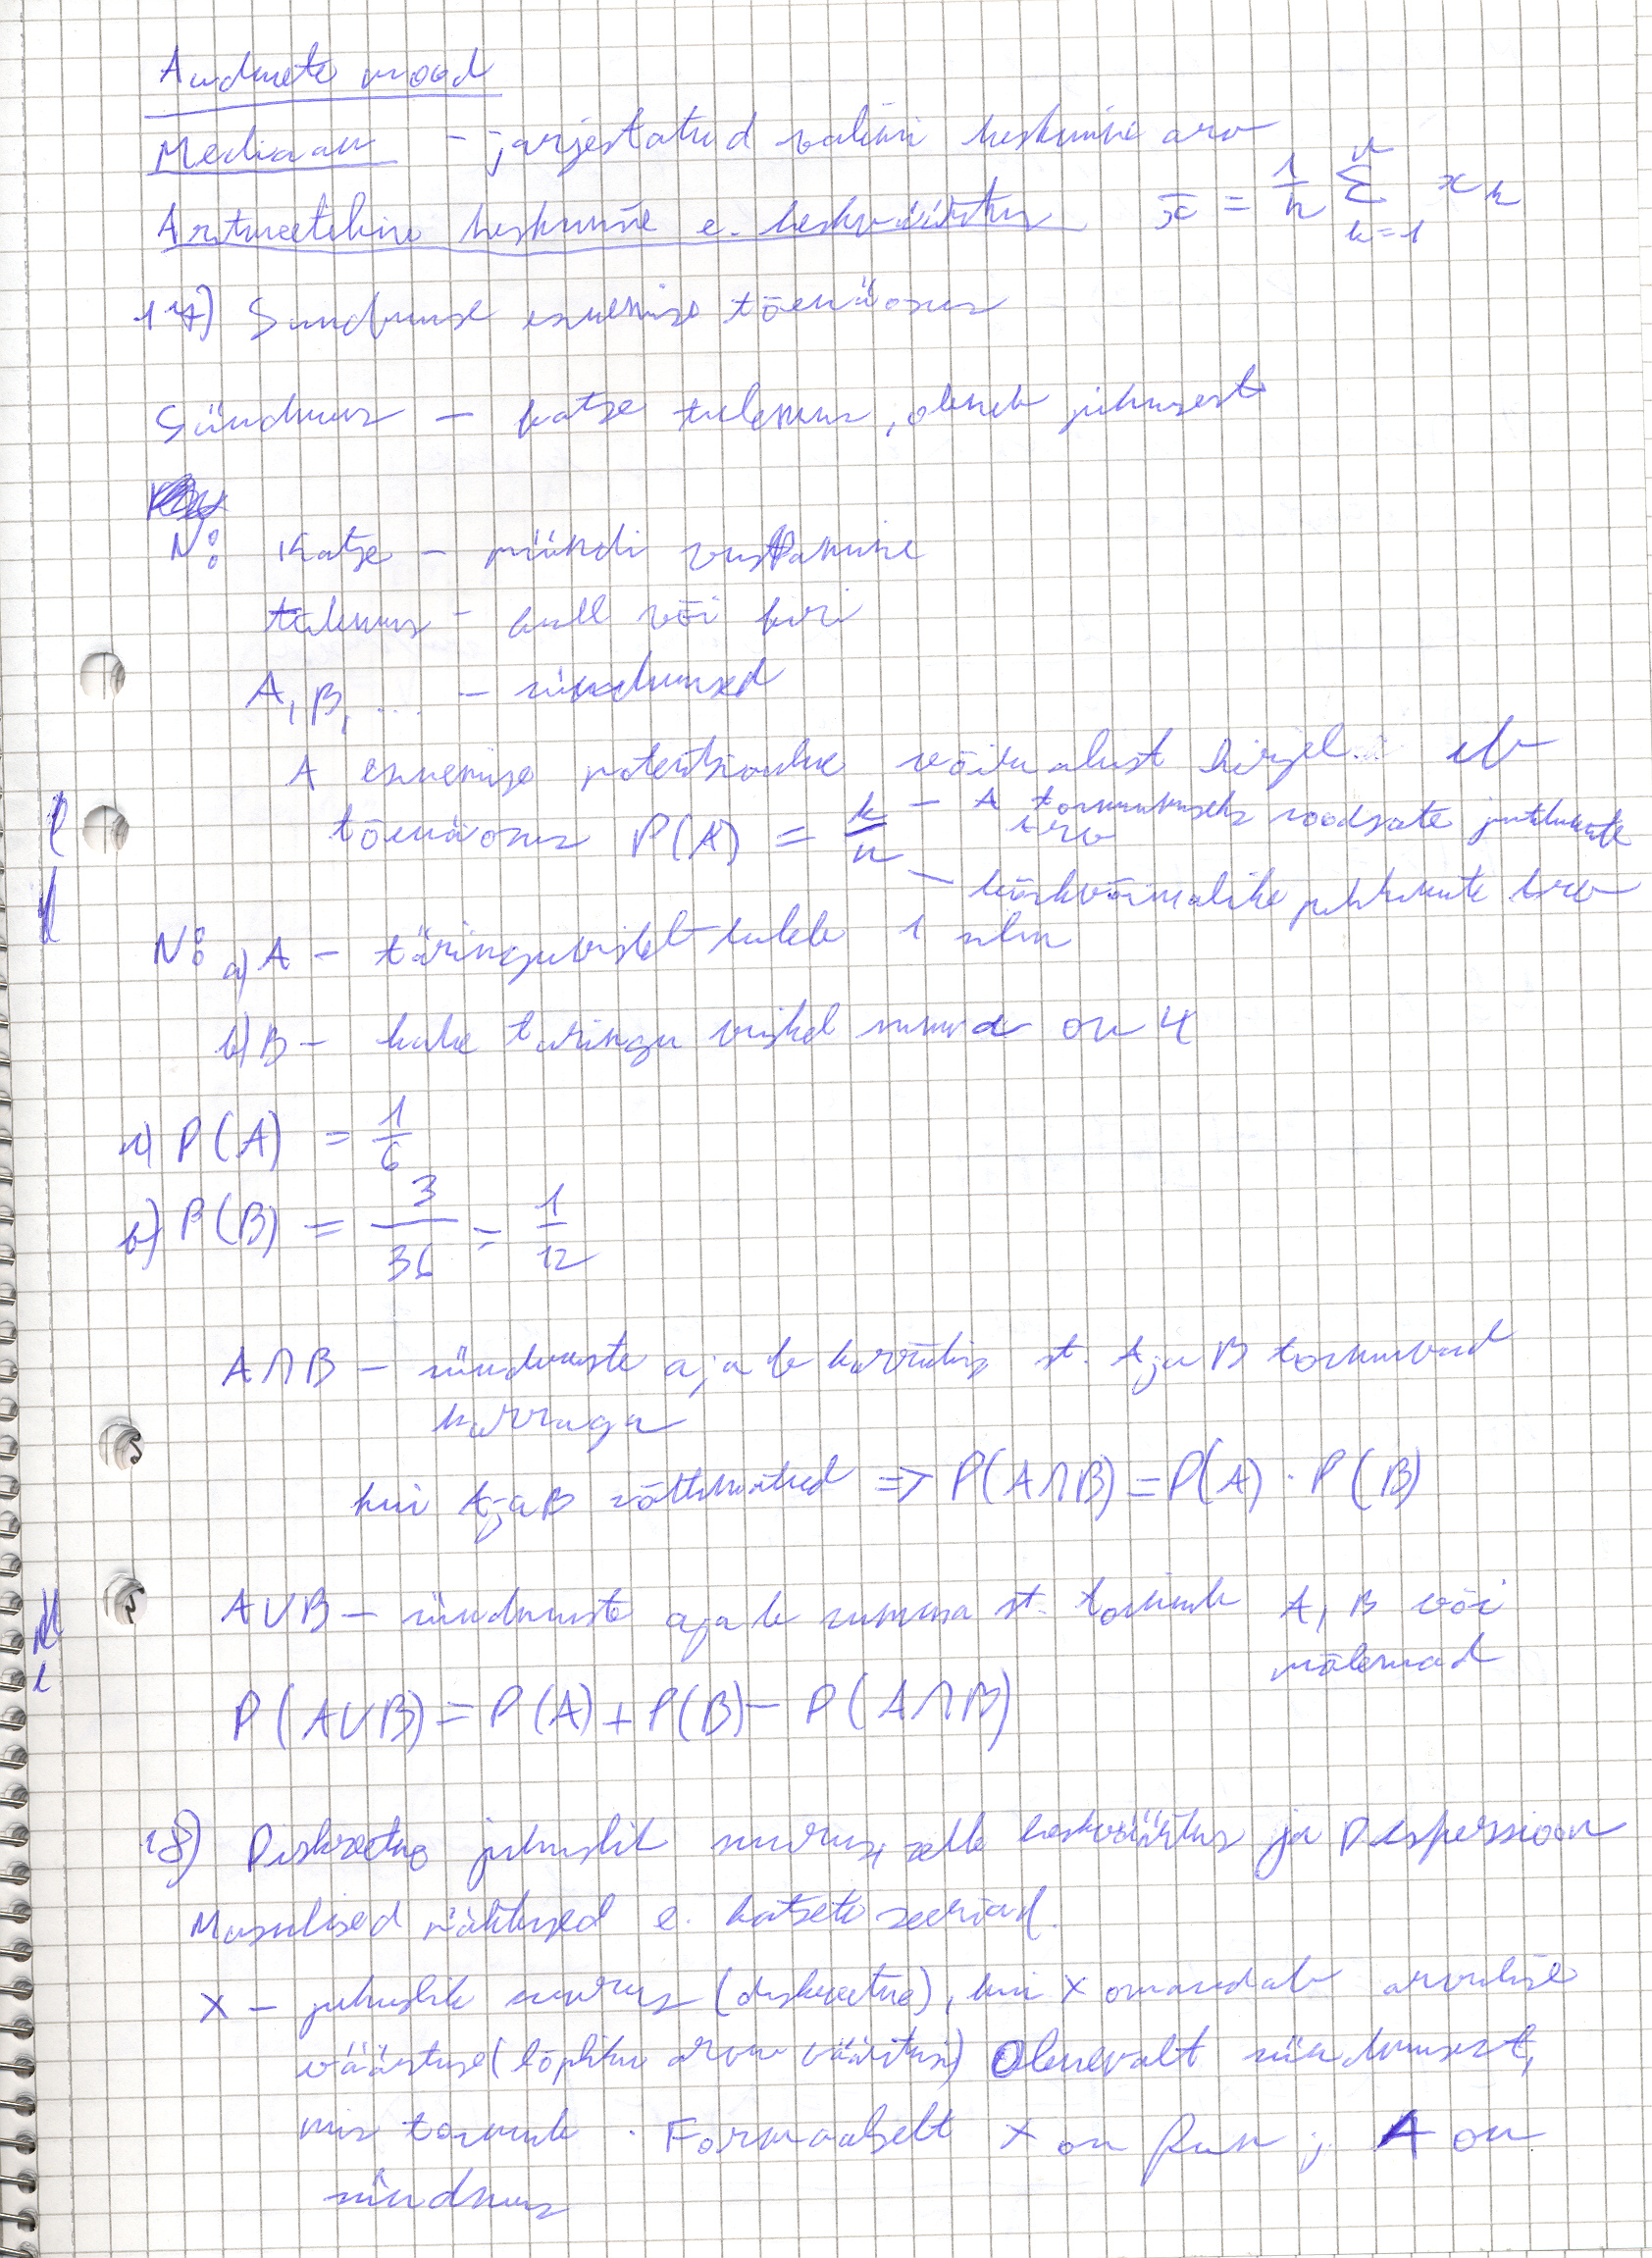 Andmete mood
Mediaan - järjestatud valimi keskmine arv
Aritmeetiline keskmine e. keskväärtus x̄ = 1/n Σ_{k=1}^{n} x_k
17) Sündmuse esinemise tõenäosus
Sündmus - katse tulemus, oleneb juhusest
N: Katse - mündi viskamine
tulemus - kull või kiri
A, B, ... - sündmused
A esinemise potentsiaalne võimalust kirjel. ehk
tõenäosus P(A) = k/n - A toimumiseks soodsate juhtumite arv
- kõikvõimalike juhtumite arv
N: a) A - täringuviskel tuleb 1 silm
b) B - kahe täringu viskel summa on 4
a) P(A) = 1/6
b) P(B) = 3/36 = 1/12
A∩B - sündmuste a ja b korrutis st. A ja B toimuvad
korraga
kui A ja B sõltumatud => P(A∩B) = P(A) · P(B)
A∪B - sündmuste a ja b summa st. toimub A, B või
mõlemad
P(A∪B) = P(A) + P(B) - P(A∩B)
18) Diskreetne juhuslik suurus, selle keskväärtus ja Dispersioon
Massilised nähtused e. katsete seeriad.
X - juhuslik suurus (diskreetne), kui X omandab arvulise
väärtuse (lõpliku arvu väärtusi) Olenevalt sündmusest,
mis toimub. Formaalselt X on fun ; A on
sündmus